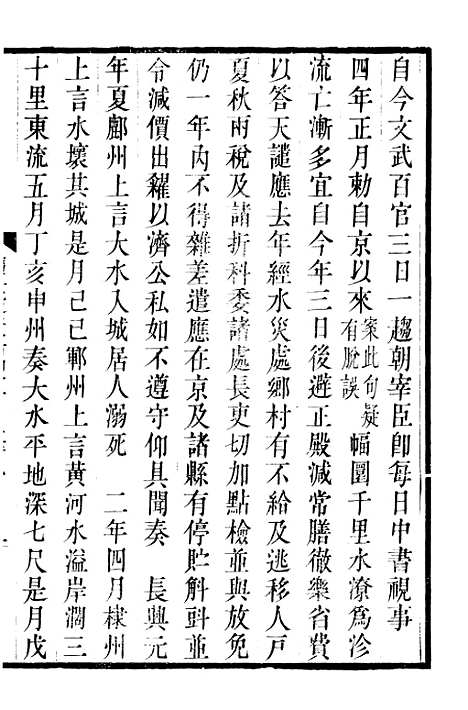 自今文武百官三日一趨朝宰臣卽每日中書視事
四年正月勅自京以來案此句疑有脫誤幅圓千里水潦爲沴
流亡漸多宜自今年三日後避正殿減常膳徹樂省費
以答天譴應去年經水災處鄉村有不給及逃移人戸
夏秋兩稅及諸折科委諸處長吏切加點檢並與放免
仍一年內不得雜差遣應在京及諸縣有停貯斛㪷並
令減價出糶以濟公私如不遵守仰具聞奏 長興元
年夏鄜州上言大水入城居人溺死 二年四月棣州
上言水壞其城是月己巳鄆州上言黃河水溢岸濶三
十里東流五月丁亥申州奏大水平地深七尺是月戊